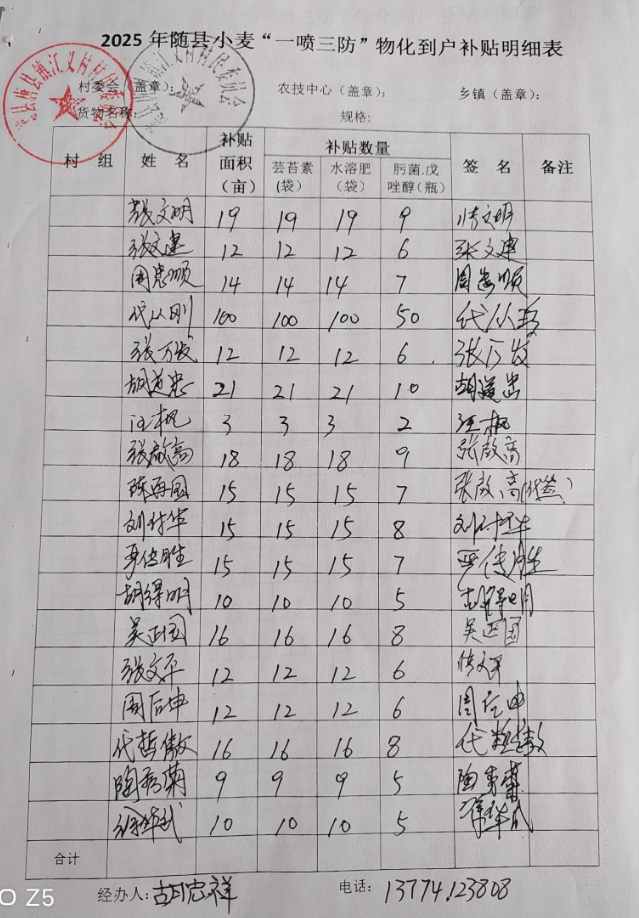 2025 年随县小麦“一喷三防”物化到户补贴明细表
村委会（盖章）： 农技中心（盖章）： 乡镇（盖章）：
货物名称： 规格：
村 组 姓 名 补贴面积（亩） 补贴数量 签 名 备注
芸苔素（袋） 水溶肥（袋） 肟菌.戊唑醇（瓶）
张文明 19 19 19 9 张文明
张文建 12 12 12 6 张文建
周忠顺 14 14 14 7 周忠顺
代从刚 100 100 100 50
张万发 12 12 12 6 张万发
胡道忠 21 21 21 10 胡道忠
汪枫 3 3 3 2 汪枫
张啟高 18 18 18 9 张啟高
陈再国 15 15 15 7 张啟高(代签)
刘付华 15 15 15 8 刘付华
严传胜 15 15 15 7 严传胜
胡得明 10 10 10 5 胡得明
吴正国 16 16 16 8 吴正国
张文平 12 12 12 6 张文平
周后申 12 12 12 6 周后申
代哲傲 16 16 16 8 代哲傲
陶秀菊 9 9 9 5 陶秀菊
10 10 10 5
合计
经办人：胡忠祥 电话：13774123808
O Z5